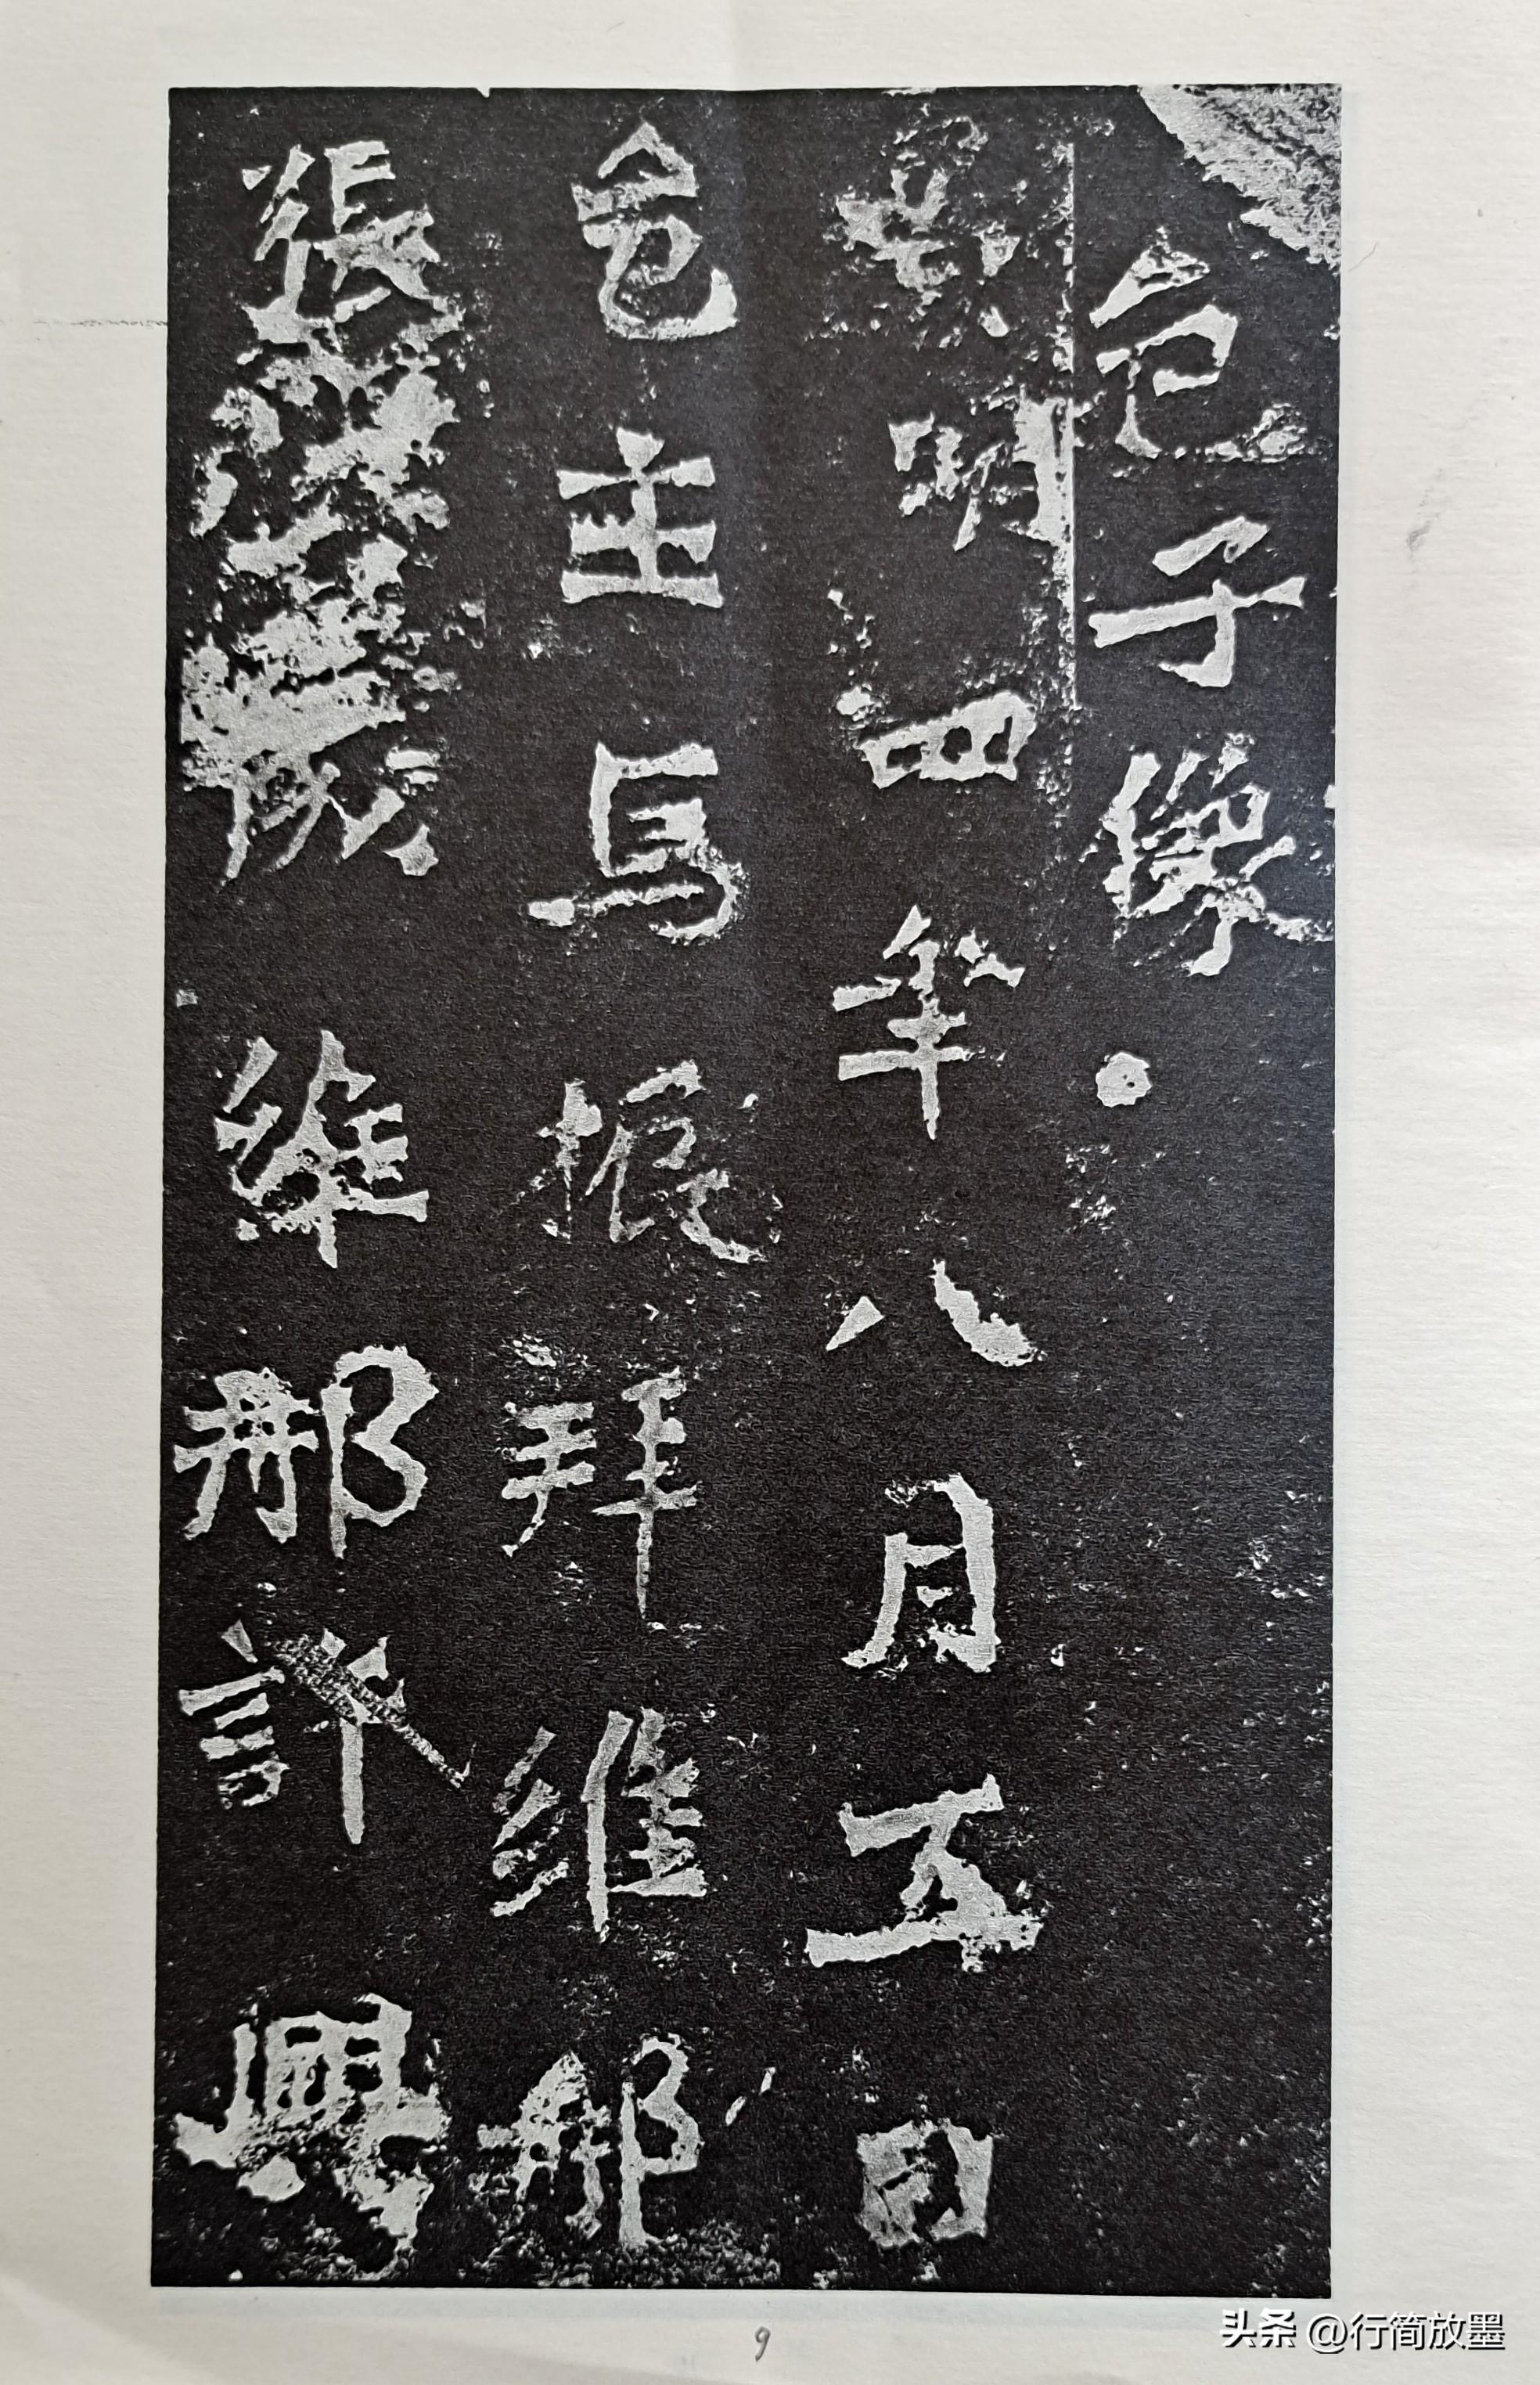 邑子像
景明四年八月五日
邑主馬振拜維那
張 成維那許興
9
头条 @行简放墨